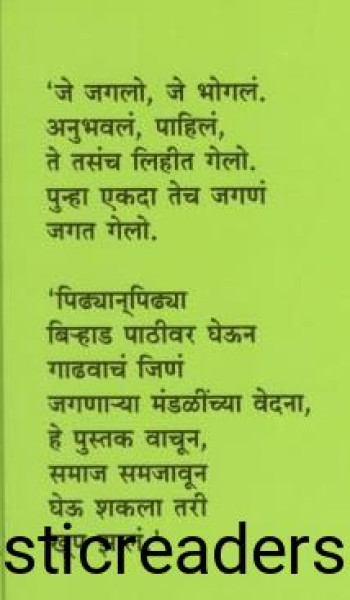 ‘जे जगलो, जे भोगलं.
अनुभवलं, पाहिलं,
ते तसंच लिहीत गेलो.
पुन्हा एकदा तेच जगणं
जगत गेलो.
‘पिढ्यान्‌पिढ्या
बिऱ्हाड पाठीवर घेऊन
गाढवाचं जिणं
जगणाऱ्या मंडळींच्या वेदना,
हे पुस्तक वाचून,
समाज समजावून
घेऊ शकला तरी
sticreaders